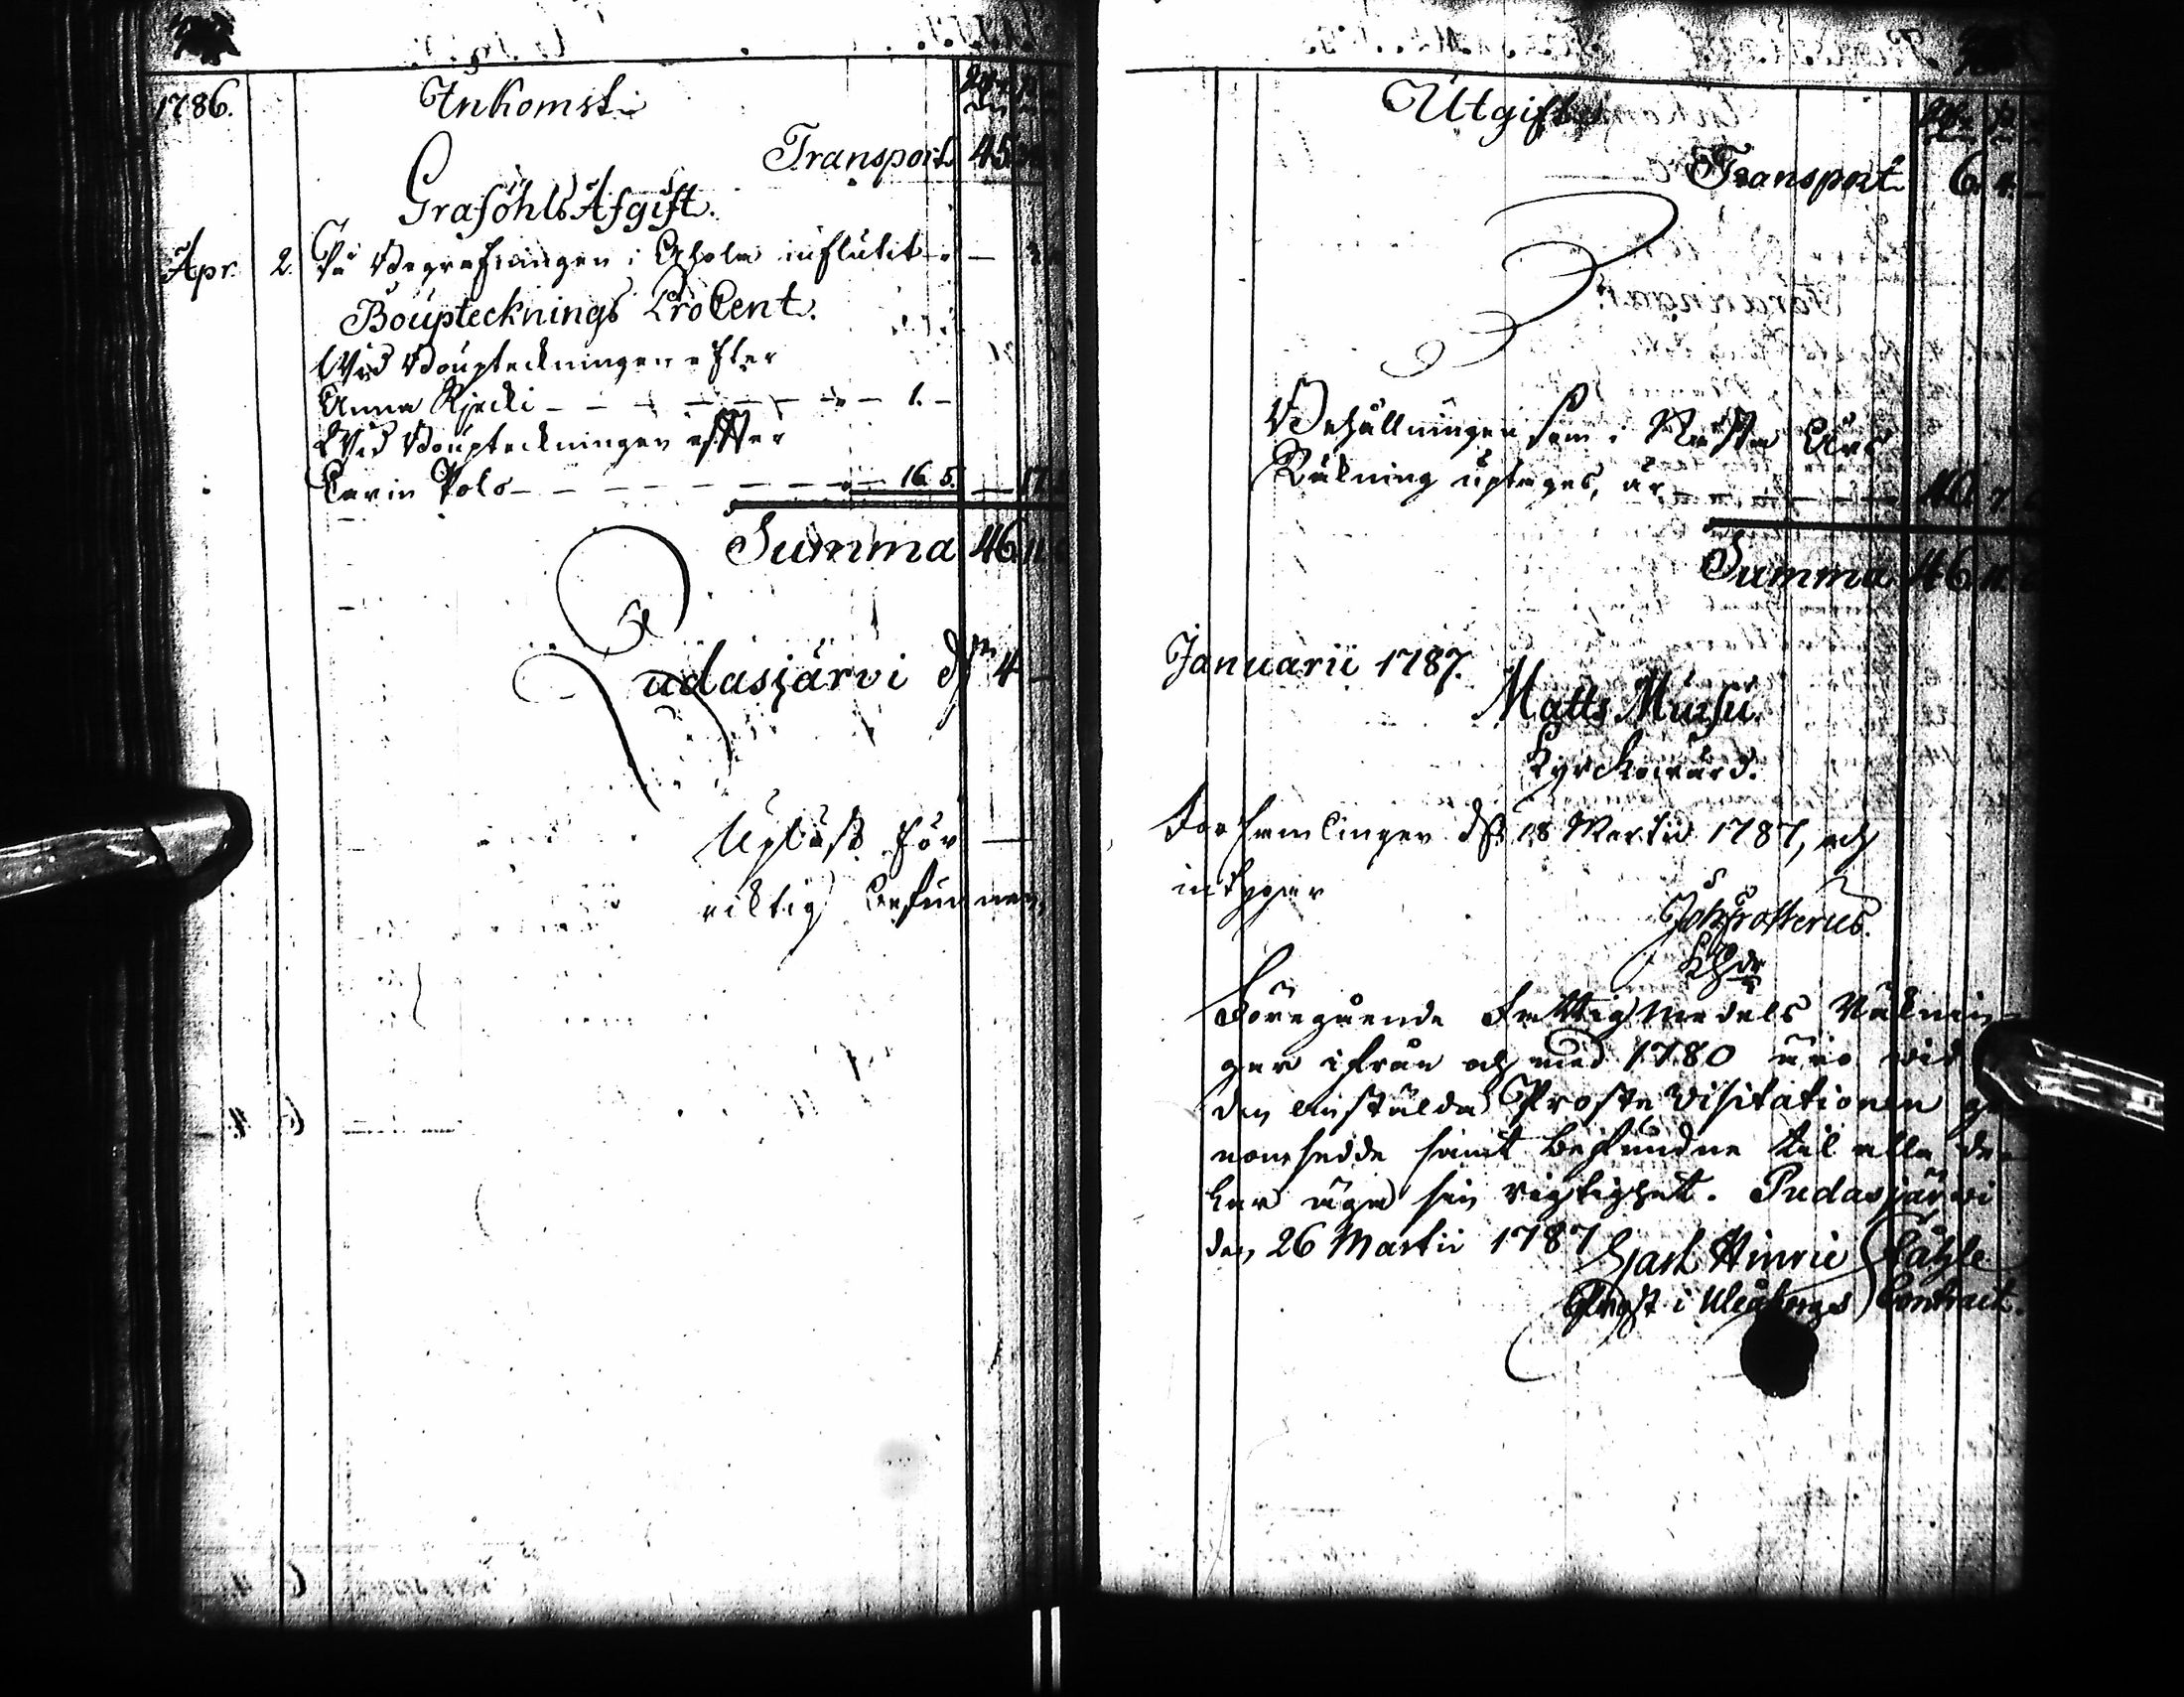 1786. Inkomst
Transport 45
Graföhls Afgift.
Apr. 2. På Begrafningen i Ahola influtit
Boupptecknings ProCent.
Wid Bouptekningen efter
Anna Kjecki 1.
Wid Bouptekningen efter
Carin Polo 16. 5. 17
Summa 46. 11
Pudasjärvi dn 4
Upläst för
riktig befunnen,
Utgift
Transport 6. 4.
Behållningen som i Nästa Års
Räkning uptages, är 40. 7.
Summa 46. 11.
Januarii 1787.
Matts Mursu.
Kyrckowärd.
Församlingen d. 18 Martii 1787, och
intygar
Joh: Frosterus.
KHde
Föregående Fattig Medels Räknin-
gar ifrån och med 1780 äro vid
den anstälda Proste Visitationen ge-
nomsedde samt befundne til alla de-
lar äga sin rigtighet. Pudasjärvi
den 26 Martii 1787
Hinric
Prost i Uleåborgs Contract.